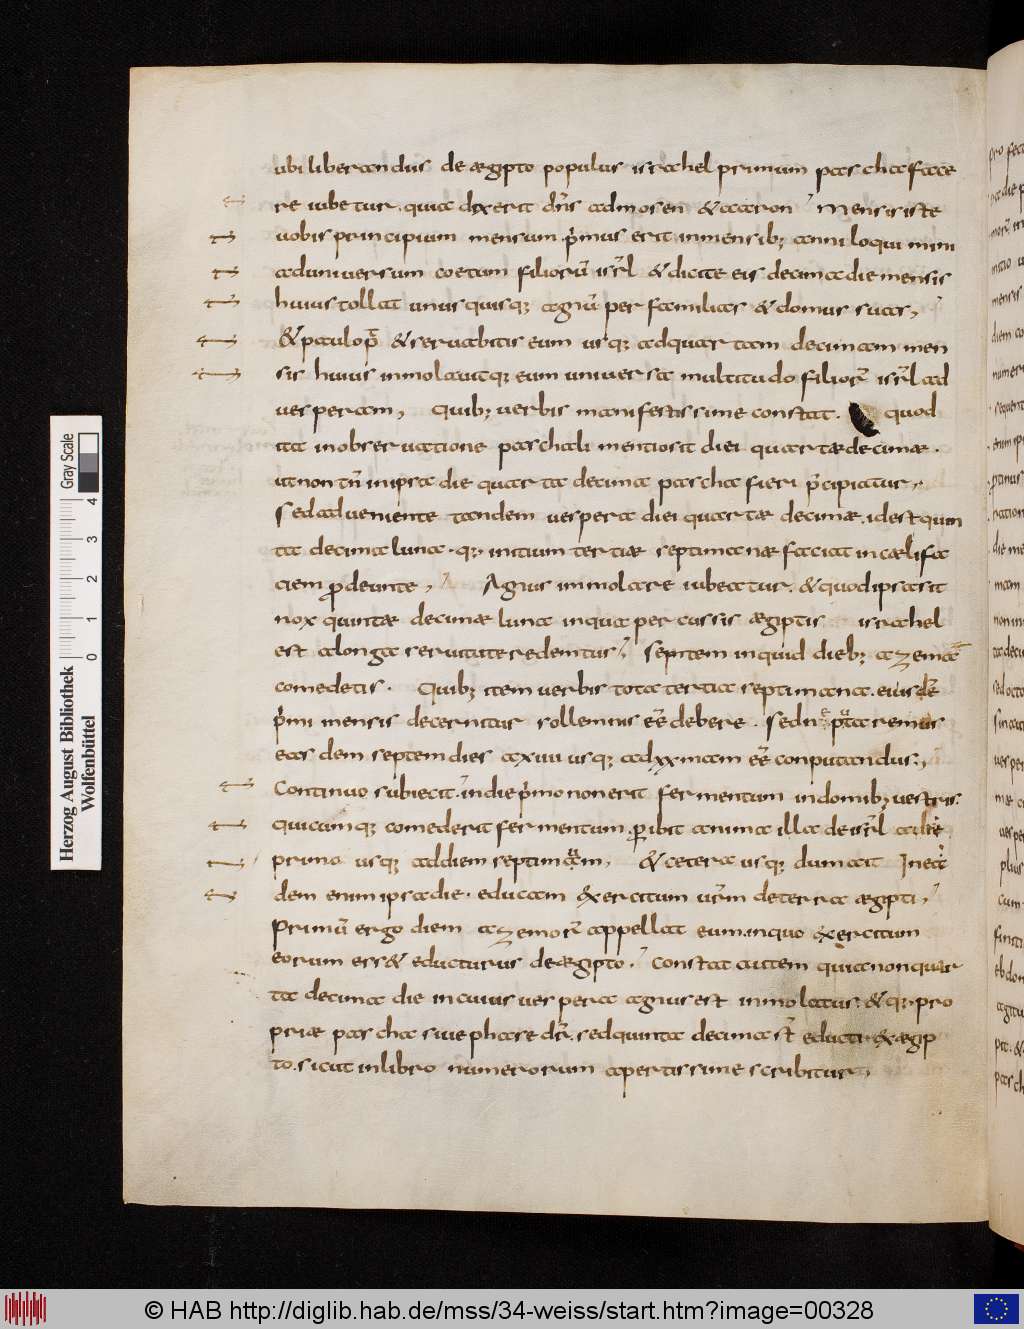 ubi liberandus de ægipto populus israhel primum pascha face
re iubetur. quia dixerit dn̄s ad mosen & aaron Mensis iste
uobis principium mensum. p̍mus erit inmensib; anni loquimini
ad uniuersum coetum filiorū isr̄l & dicite eis decima die mensis
huius tollat unusquisq; agnū per familias & domus suas,
& paulo p̄ & seruabitis eum usq; ad quartam decimam men
sis huius inmolauitq; eum uniuersa multitudo filior̄ isr̄l ad
uesperam, Quib; uerbis manifestissime constat. quod
ita in obseruatione paschali mentio sit diei quartæ decimæ.
ut non tn̄ in ipsa die quarta decima pascha fieri p̄cipiatur,
Sed adueniente tandem uespera diei quartæ decimæ. id est quin
ta decima luna. q; initium tertiæ septimanæ faciat in cæli fa
ciem prodeunte, Agnus immolare iubeatur. & quod ipsa sit
nox quintæ decimæ lunæ in qua percussis ægiptis israhel
est a longa seruitute redemtus, Septem inquid dieb; azema
comedetis. Quib; item uerbis tota tertia septimana. eiusdē
p̍mi mensis decernitur sollemnis ee͞ debere. Sed ne putaremus
eas dem septem dies a xiiii usq; ad xx mam ee͞ conputandus.,
Continuo subiecit. in die p̍mo non erit fermentum in domib; uestris.
quicumq; comederit fermentum. p̱ibit anima illa de isr̄l a die
primo usq; ad diem septimam, & cetera usq; dum ait In ea
dem enim ipsa die. educam exercitum ur̄m de terra ægipti,
Primū ergo diem azemor̄ appellat eum. in quo exercitum
eorum ess& educturus de ægipto. Constat autem quia non quar
ta decima die in cuius uespera agnus est inmolatus. & q; pro
priæ pascha siue phase dr̄. sed quinta decima st̄ educti ex ægip
to. sicut in libro numerorum apertissime scribitur,
Herzog August Bibliothek
Wolfenbüttel
0 1 2 3 4
Gray Scale
© HAB http://diglib.hab.de/mss/34-weiss/start.htm?image=00328